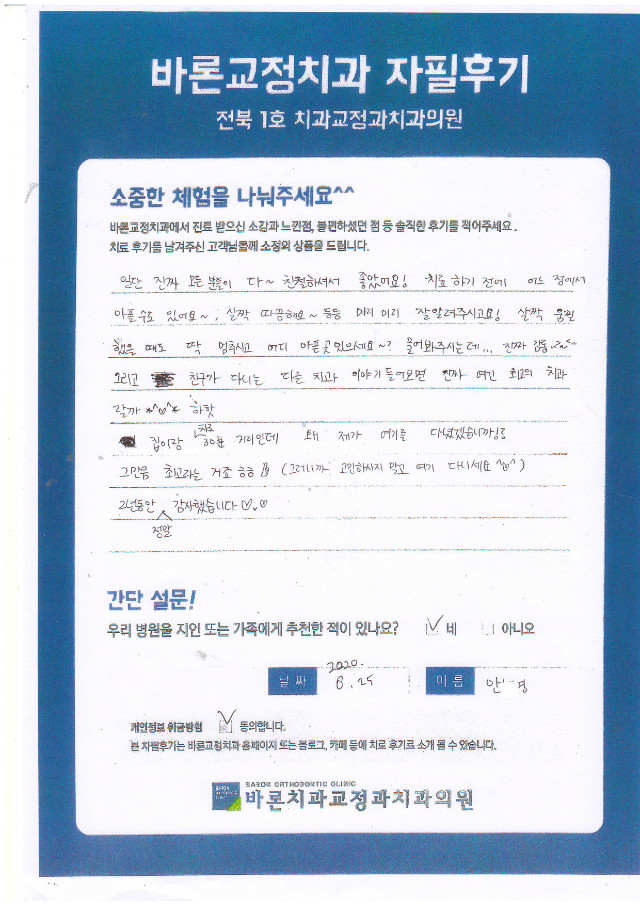 바론교정치과 자필후기
전북 1호 치과교정과치과의원
소중한 체험을 나눠주세요^^
바론교정치과에서 진료 받으신 소감과 느낀점, 불편하셨던 점 등 솔직한 후기를 적어주세요.
치료 후기를 남겨주신 고객님들께 소정의 상품을 드립니다.
일단 진짜 모든 분들이 다~ 친절하셔서 좋았어요! 치료 하기 전에 어느 점에서
아플 수도 있어요~, 살짝 따끔해요~ 등등 미리 미리 잘 알려주시고요! 살짝 움찔
했을 때도 딱 멈추시고 어디 아픈 곳 있으세요~? 물어봐주시는데... 진짜 감동
그리고 친구가 다니는 다른 치과 이야기 들어보면 진짜 여긴 최고의 치과
랄까 *^ㅇ^* 하핫
집이랑 차로 30분 거리인데 왜 제가 여기를 다녔겠습니까!
그만큼 최고라는 거죠 ㅎㅎ (그러니까 고민하시지 말고 여기 다니세요 ^ㅇ^)
2년동안 정말 감사했습니다 ♡.♡
간단 설문!
우리 병원을 지인 또는 가족에게 추천한 적이 있나요? ✓ 네 아니오
날 짜 2020. 8. 25 이 름 안 명
개인정보 취급방침 ✓ 동의합니다.
본 자필후기는 바론교정치과 홈페이지 또는 블로그, 카페 등에 치료 후기로 소개 될 수 있습니다.
BARON ORTHODONTIC CLINIC
바론치과교정과치과의원